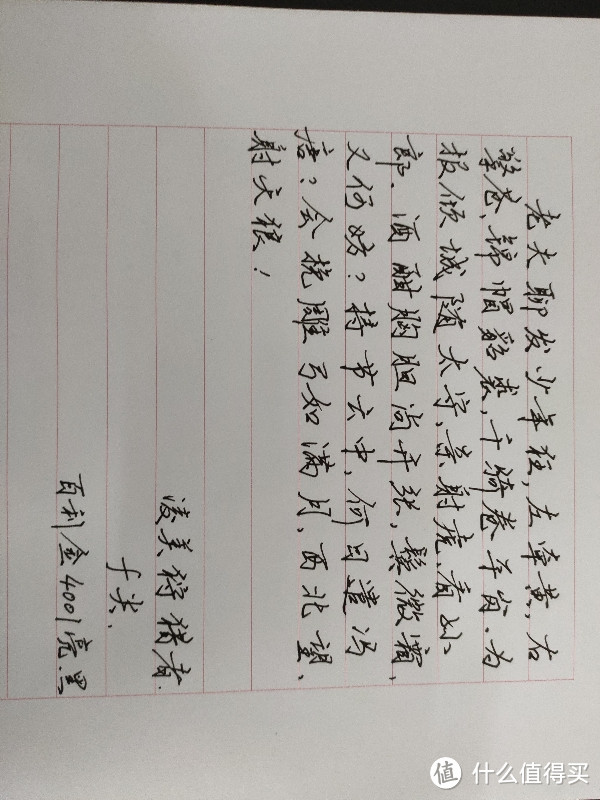 老夫聊发少年狂,左牵黄,右
擎苍,锦帽貂裘,千骑卷平冈.为
报倾城随太守,亲射虎,看孙
郎,酒酣胸胆尚开张,鬓微霜,
又何妨?持节云中,何日遣冯
唐?会挽雕弓如满月,西北望,
射天狼!
凌美狩猎者.
f尖.
百利金4001亮黑
值 什么值得买